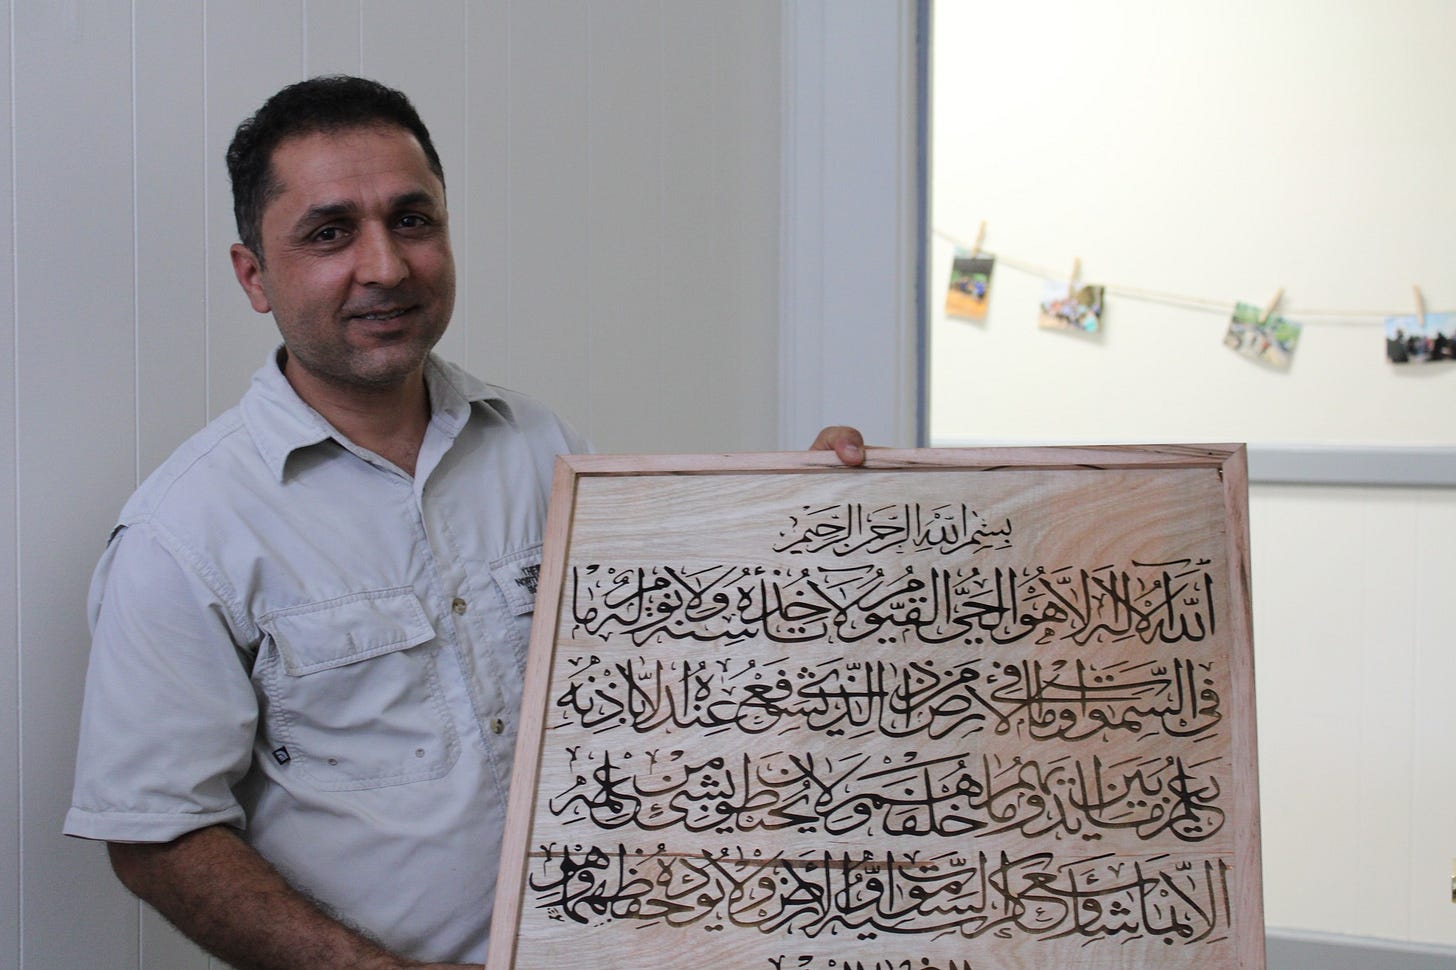 بسم الله الرحمن الرحيم
الله لا إله إلا هو الحي القيوم لا تأخذه سنة ولا نوم له ما
في السموات وما في الأرض من ذا الذي يشفع عنده إلا بإذنه
يعلم ما بين أيديهم وما خلفهم ولا يحيطون بشيء من علمه
إلا بما شاء وسع كرسيه السموات والأرض ولا يؤده حفظهما وهو